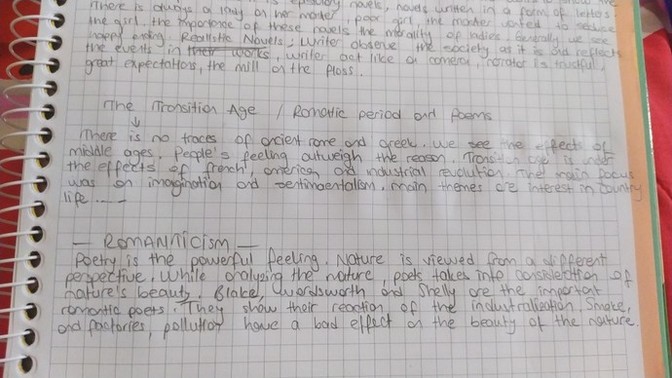 is epistolary novels, novels written in a form of letters
There is always a lady an her master, poor girl, the master wanted to seduce
the girl, the importance of these novels the morality of ladies. Generally, we see
happy ending. Realistic Novels; Writer observe the society as it is and reflects
the events in their works, writer act like a camera, narrator is trustful,
great expectations, the mill on the floss.
The Transition Age / Romantic period and Poems
There is no traces of ancient rome and greek. we see the effects of
middle ages. People's feeling outweigh the reason. Transition age is under
the effects of french, american and industrial revolution. The main focus
was on imagination and sentimentalism. main themes are interest in country
life ......
— ROMANTICISM —
Poetry is the powerful feeling. Nature is viewed from a different
perspective. While analyzing the nature, poets takes into consideration of
nature's beauty. Blake, Wordsworth and Shelly are the important
romantic poets. They show their reaction of the industralization. Smoke,
and factories, pollution have a bad effect on the beauty of the nature.